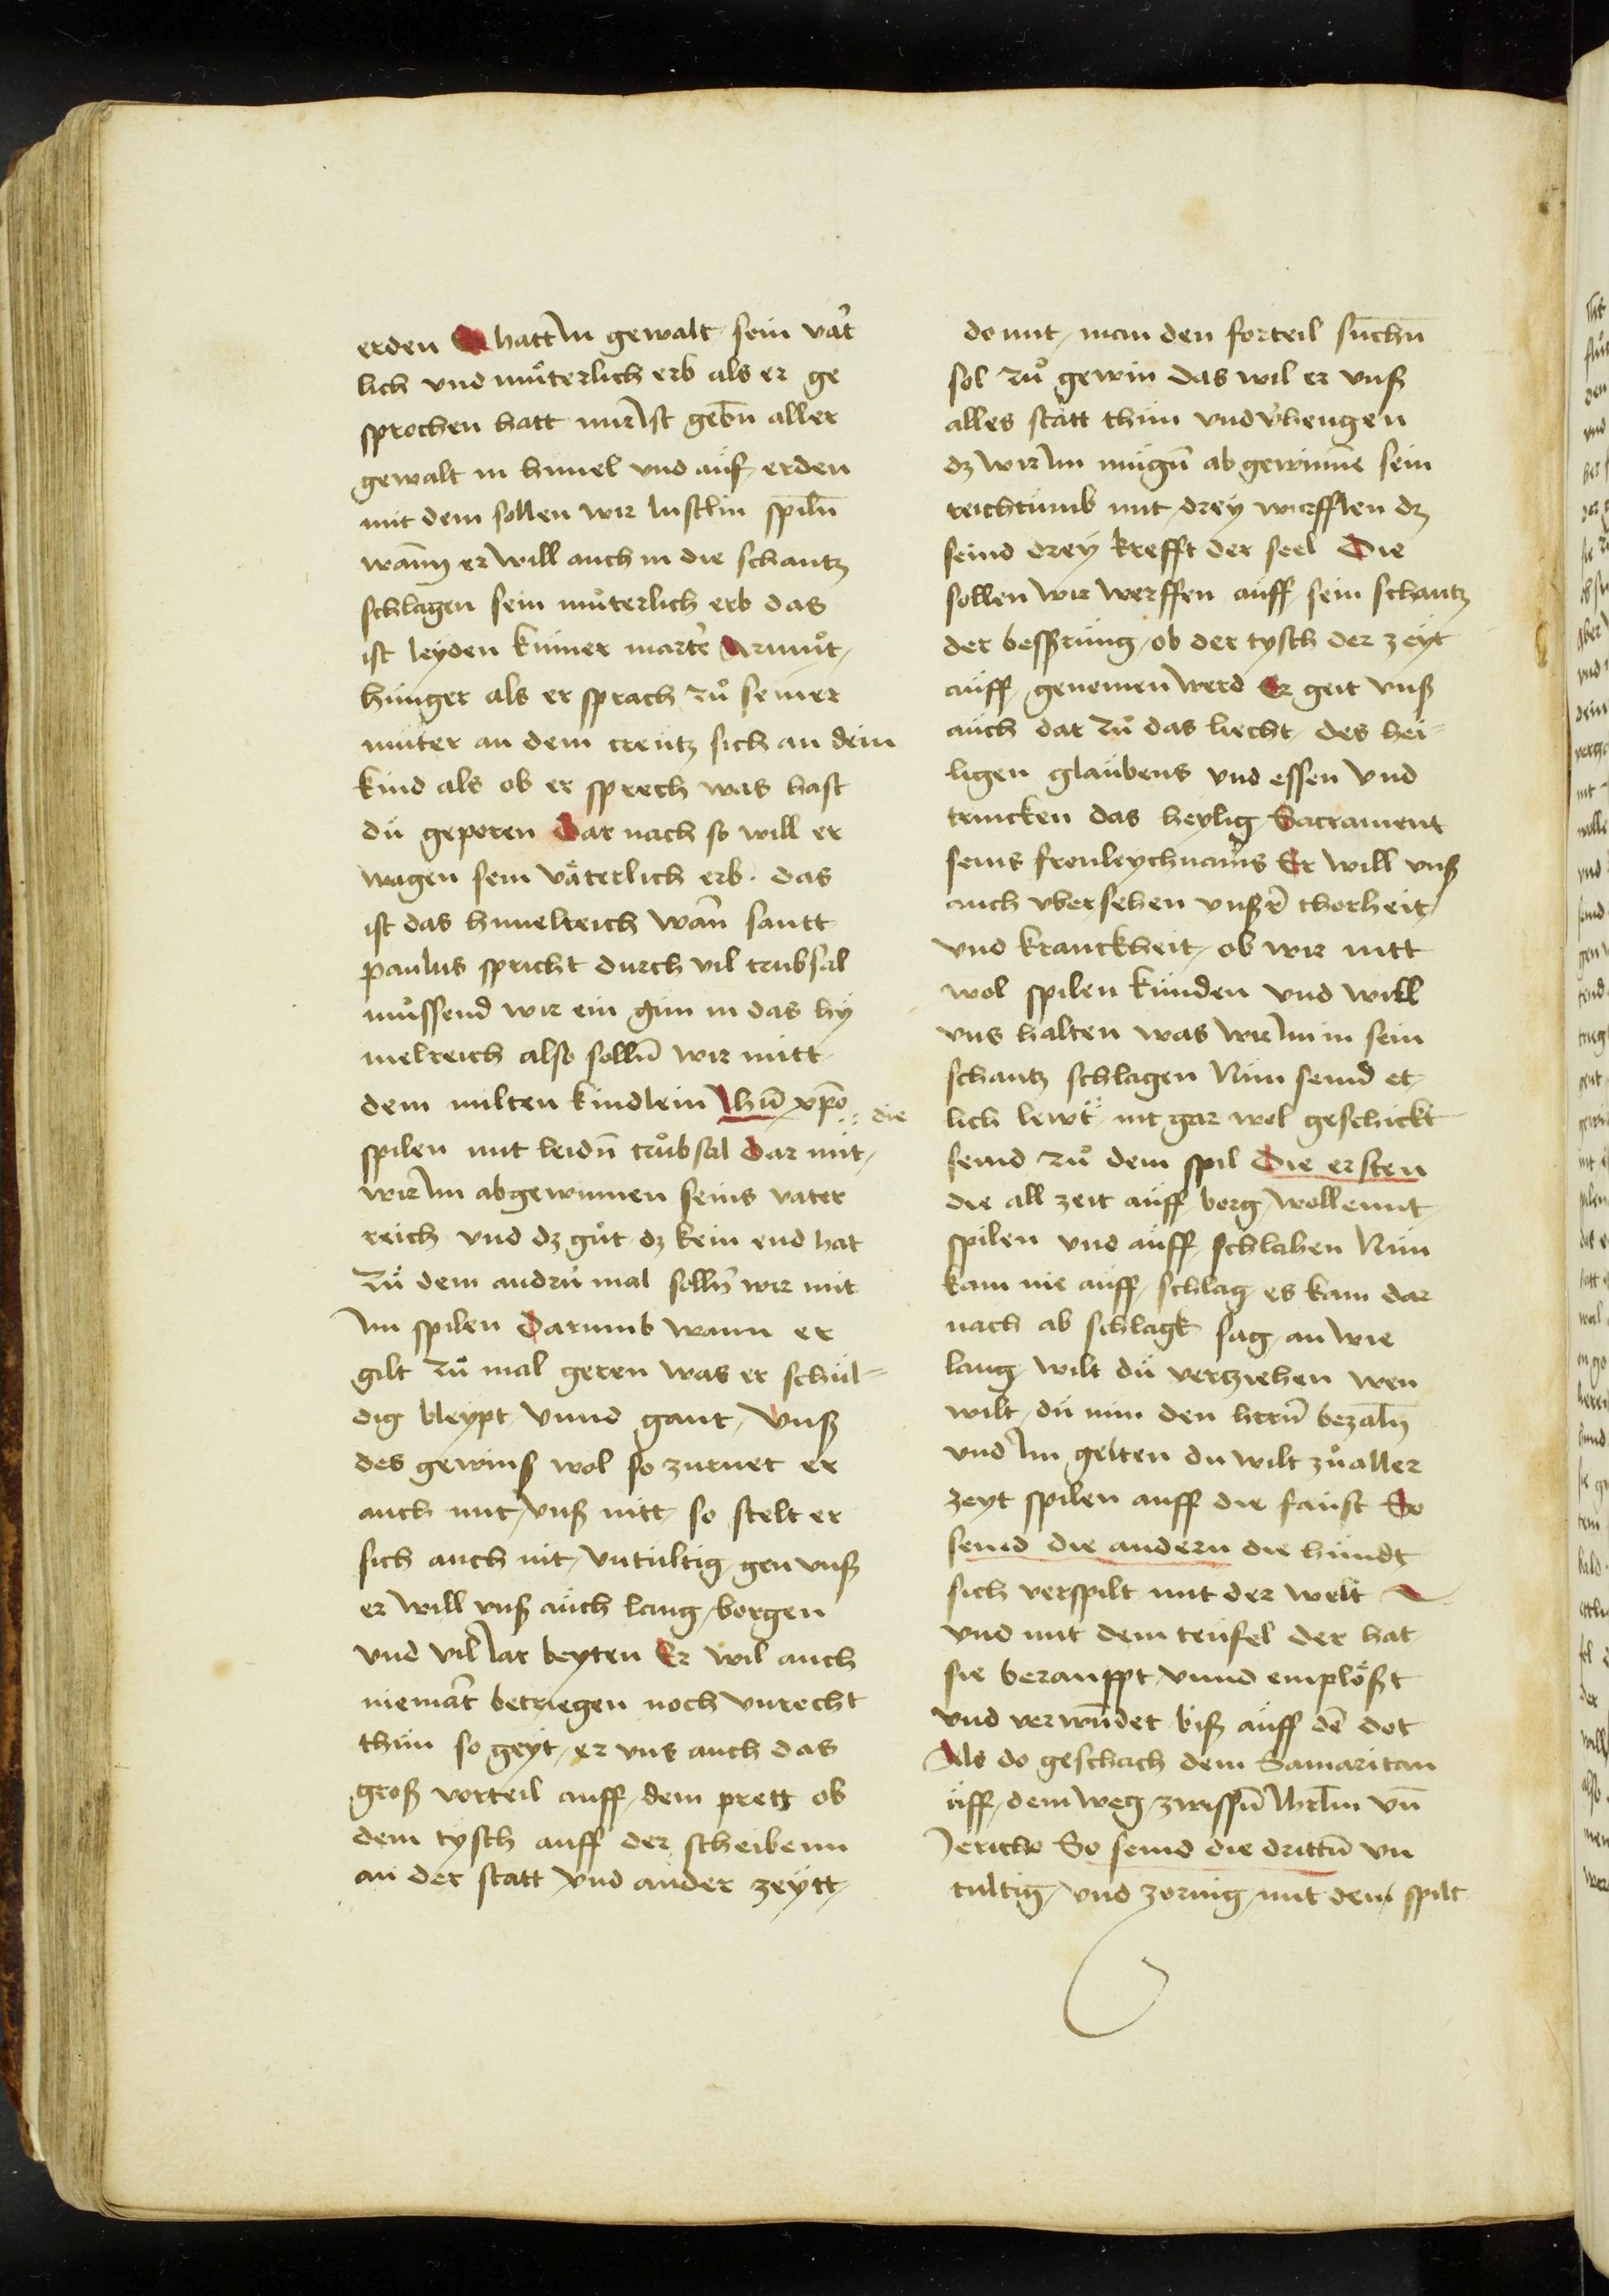 erden Er hatt In gewalt sein vat̄
lich vnd mu̇terlich erb als er ge
sprochen hatt mir Ist gebn̄ aller
gewalt in himel vnd auf erden
mit dem sollen wir lustlin spiln̄
wann̄ er will auch in die schantz
schlagen sein mu̇terlich erb das
ist leyden kumer marter Armut
hunger als er sprach zu seiner
muter an dem creutz sich an dein
kind als ob er sprech was hast
du geporen Dar nach so will er
wagen sein väterlich erb. das
ist das himelreich wan̄ santt
paulus spricht durch vil trubsal
mussend wir ein gun in das hy
melreich also solln̄ wir mitt
dem milten kindlein Ihū xp̄o
spilen mit leidn̄ trubsal dar mit die
wir Im abgewinnen seins vater
reich vnd dz gut dz kein end hat
zu dem andrn̄ mal solln̄ wir mit
Im spilen Darumb wann er
gilt zu mal geren was er schul=
dig bleypt vnnd gant vnß
des gewins wol so zurnet er
auch mit vnß nitt so stelt er
sich auch nit vntultig gen vnß
er will vnß auch lang borgen
vnd vil Iar beyten Er wil auch
niemāt betriegen noch vnrecht
thun so geyt er vns auch das
groß vorteil auff dem prett ob
dem tysch auff der scheibenn
an der statt vnd ander zeytt
do mit man den forteil suchn̄
sol zu gewin das wil er vnß
alles statt thun vnd v̄hengen
dz wir Im mugn̄ ab gewinnē sein
reichtumb mit drey wurfflen dz
seind drey krefft der seel Die
sollen wir werffen auff sein schantz
der besprung ob der tysch der zeyt
auff genomen werd Er geit vnß
auch dar zu das liecht des hei=
ligen glaubens vnd essen vnd
trincken das heylig Sacrament
seins fronleychnams Er will vnß
auch vbersehen vnsr̄ thorheit
vnd kranckheit ob wir nitt
wol spilen kunden vnd will
vns halten was wir Im in sein
schantz schlagen Nun seind et
lich lewt nit gar wol geschickt
seind zu dem spil Die ersten
die all zeit auff borg wollennt
spilen vnd auff schlahen Nun
kam nie auff schlag es kam dar
nach ab schlagk sag an wie
lang wilt du verziehen wen
wilt du nun den herrn̄ bezaln̄
vnd Im gelten du wilt zu aller
zeyt spilen auff die faust So
seind die andern die hundt
sich verspilt mit der welt
vnd mit dem teufel der hat
sie berauppt vnnd emplößt
vnd verwundet biß auff dē dot
Als do geschach dem Samaritan
uff dem weg zwissn̄ Ihrl̄m vn̄
Jericho So seind die drittn̄ vn
tultig vnd zornig mit dem spilt